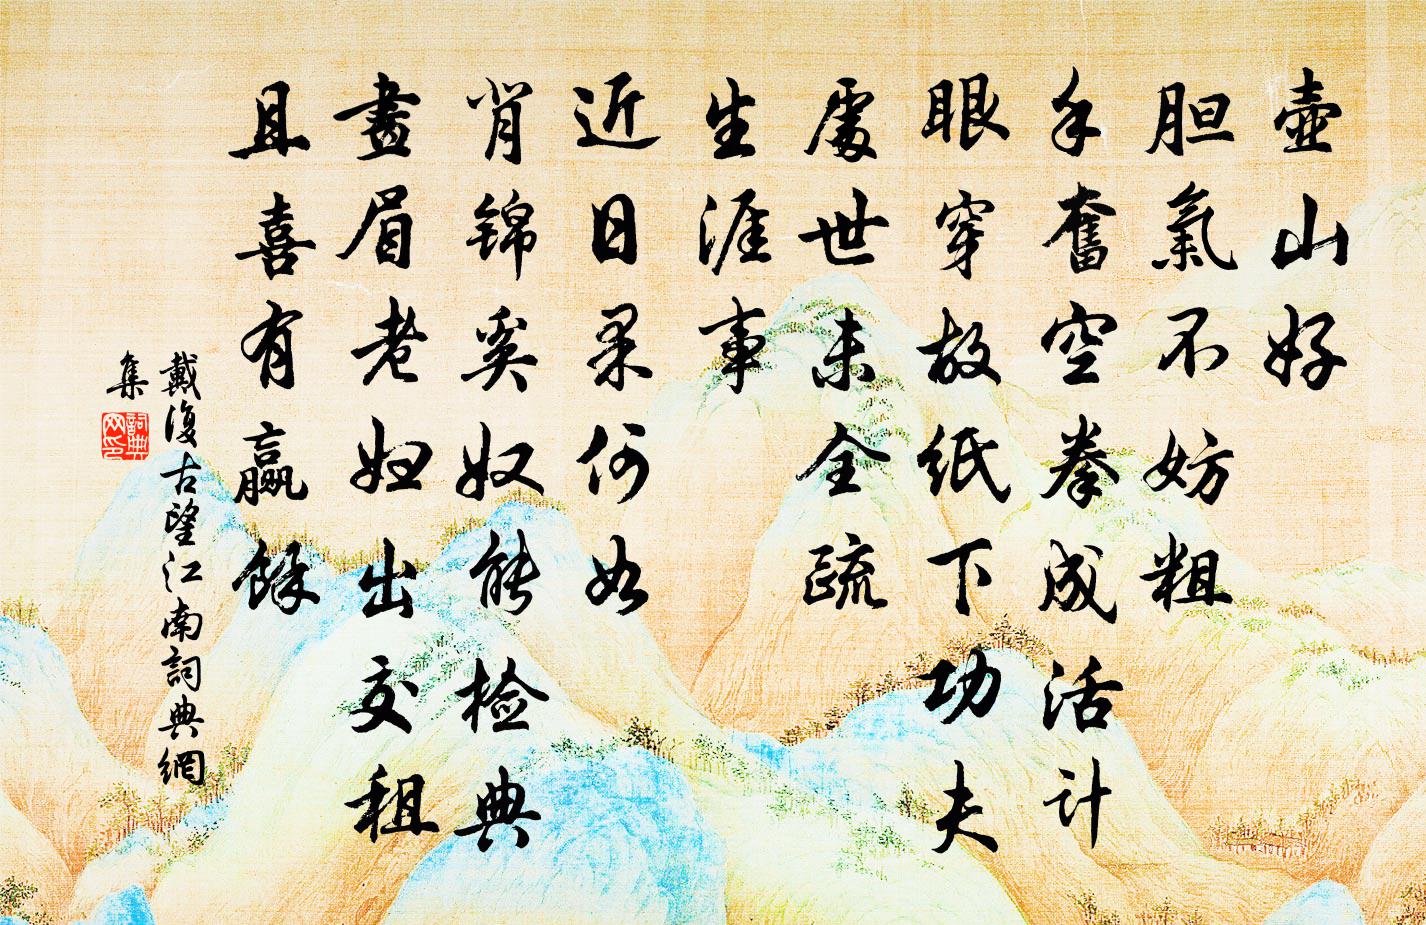 壺山好
胆氣不妨粗
手奮空拳成活計
眼穿故紙下功夫
處世未全疏
生涯事
近日果何如
背锦奚奴能检典
畫眉老妇出交租
且喜有赢餘
戴復古望江南詞典網
集
詞典
网印